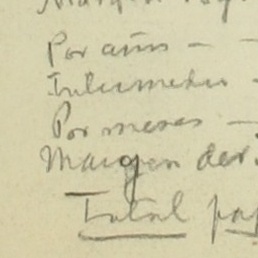 Por años -
Intermedio -
Por meses -
Margen der.
Total pap